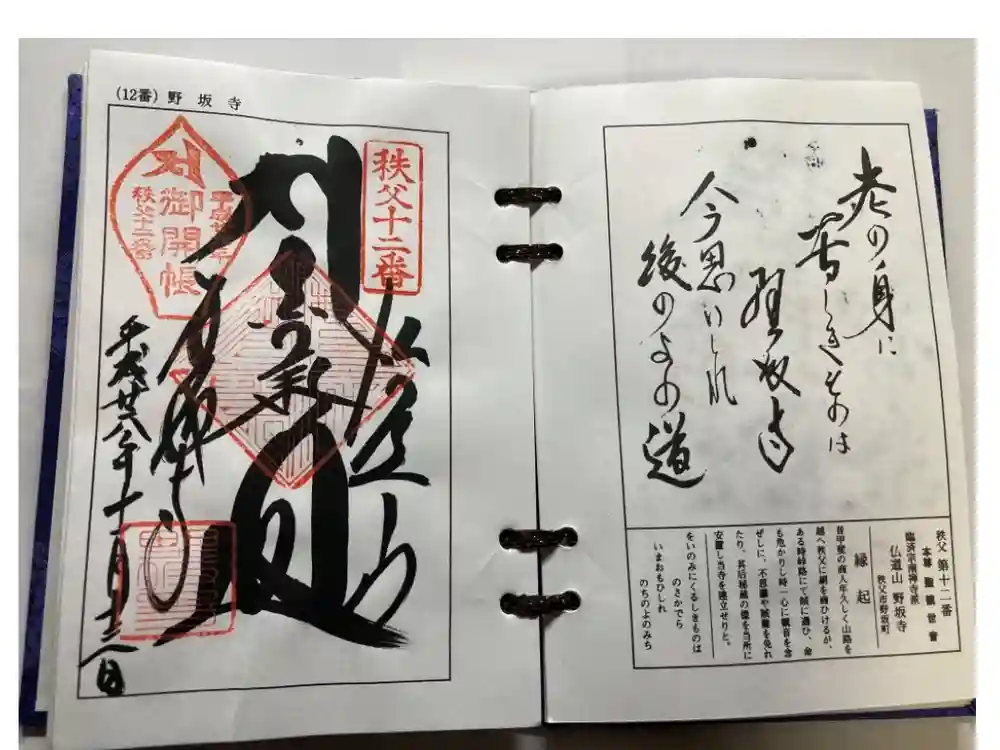 (12番) 野坂寺
秩父十二番
御開帳
秩父十二番
平成廿六年十一月十二日
老の身に
苦しきものは
野坂寺
今思いしれ
後のよの道
秩父 第十二番
本尊 聖観世音
臨済宗南禅寺派
仏道山 野坂寺
秩父市野坂町
縁起
昔甲斐の商人年久しく山路を
越へ秩父に絹を商ひけるが、
ある時峠路にて賊に遭ひ、命
も危かりし時一心に観音を念
ぜしに、不思議や賊難を免れ
たり、其后秘蔵の像を当所に
安置し当寺を建立せりと。
をいのみにくるしきものは
のさかでら
いまおもひしれ
のちのよのみち